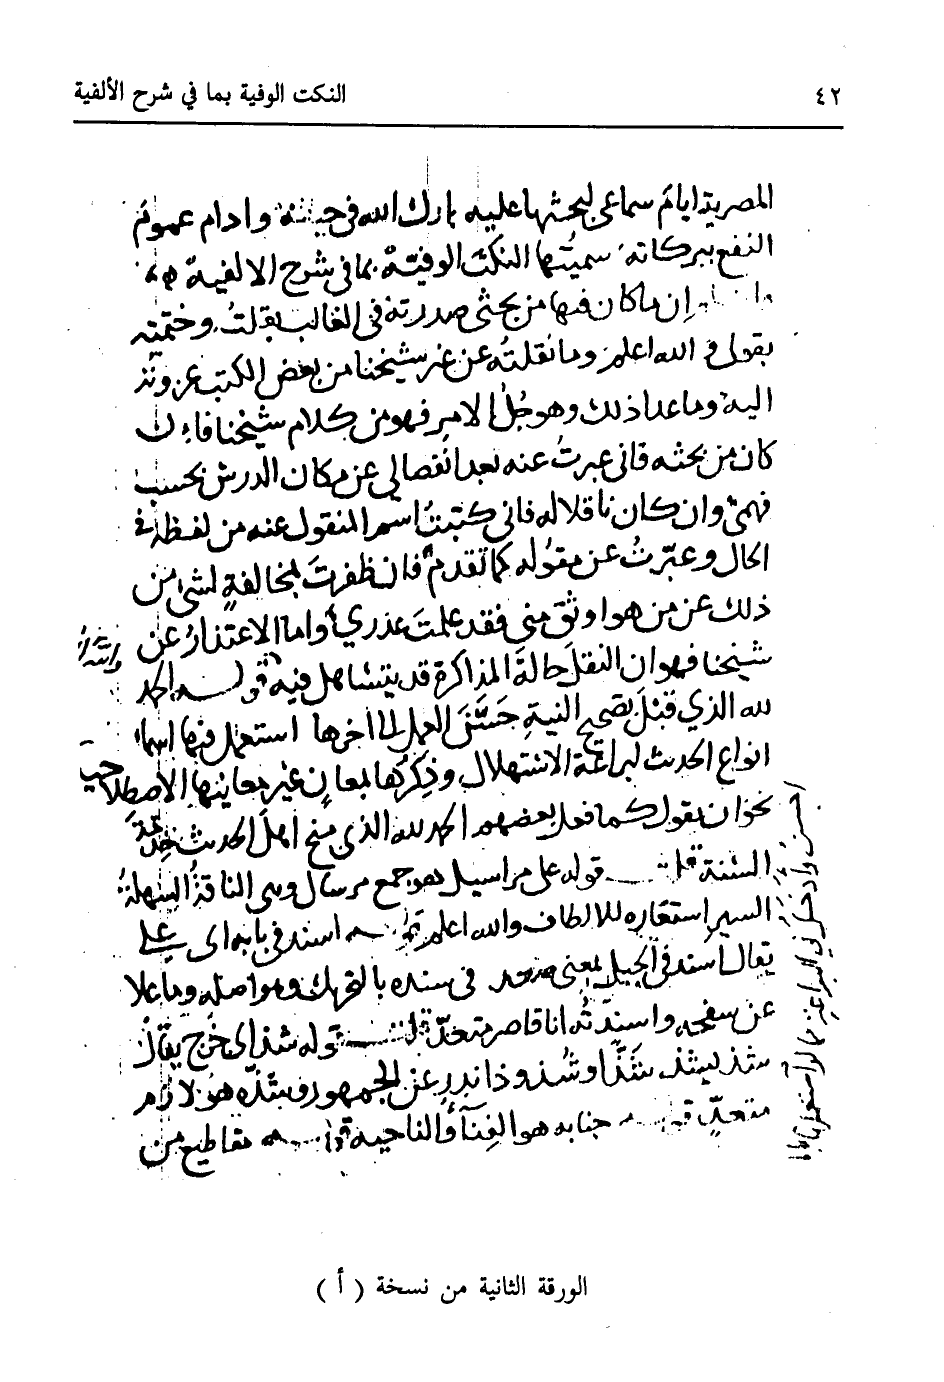 ٤٢ النكت الوفية بما في شرح الألفية
المصرية ايام سماعي لبحثها عليه بارك الله في حياته وادام عموم
النفع ببركاته سميتها النكت الوفية بما في شرح الالفية
ان ما كان فيها من بحثي صدرته في الغالب بقلت وختمته
بقولي والله اعلم وما نقلته عن غير شيخنا من بعض الكتب عزوته
اليه وما عدا ذلك وهو جُل الامر فهو من كلام شيخنا فان
كان من بحثه فاني عبرت عنه بعد انفصالي عن مكان الدرس بحسب
فهمي وان كان ناقلا له فاني كتبت اسم المنقول عنه من لفظه في
الحال وعبّرتُ عن مقوله كما تقدم فان ظفرتَ بمخالفةٍ لشيء من
ذلك عن من هو اوثق مني فقد علمت عذري واما الاعتذار عن
شيخنا فهو ان النقل حالة المذاكرة قد يتساهل فيه قوله الحمد
والله
لله الذي قبل بصحيح النية حسَنَ العمل الى اخرها استعمل فيها اسماء
انواع الحديث لبراعة الاستهلال وذِكرُها بمعانٍ غير معاينها الاصطلاحية
نحو ان يقول كما فعل بعضهم الحمد لله الذي منح اهل الحديث خدمة
السُّنة قلت قوله على مراسيل هو جمع مرسال وهي الناقةُ السهلةُ
السير استعاره للالطاف والله اعلم قوله اسند في بابه اي علي
يقال اسند في الجبل بمعنى صعد في سنده بالتحريك وهو اصله وما علا
عن سفحه واسندته انا قاصر متعدّ قلت قوله شذ اي خرج يقال
شذ يشذ شَذًّا وشُذوذا ندر عن الجمهور وشذّه هو لازم
متعدٍّ قوله جنابه هو الفِنآء والناحية قوله مقاطيع من
الورقة الثانية من نسخة ( أ )